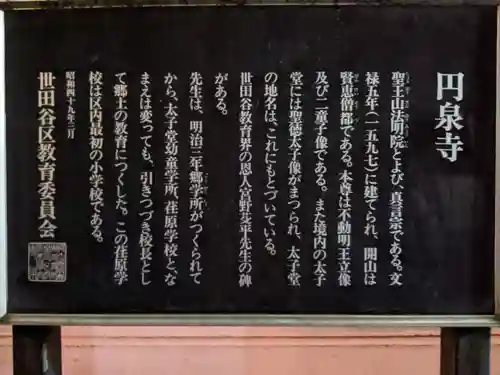 円泉寺
聖王山法明院とよび、真言宗である。文
禄五年(一五九七)に建てられ、開山は
賢恵僧都である。本尊は不動明王立像
及び二童子像である。また境内の太子
堂には聖徳太子像がまつられ、太子堂
の地名は、これにもとづいている。
世田谷教育界の恩人宮野芝平先生の碑
がある。
先生は、明治三年郷学所がつくられて
から、太子堂幼童学所、荏原学校と、な
まえは変っても、引きつづき校長とし
て郷土の教育につくした。この荏原学
校は区内最初の小学校である。
昭和四十九年三月
世田谷区教育委員会